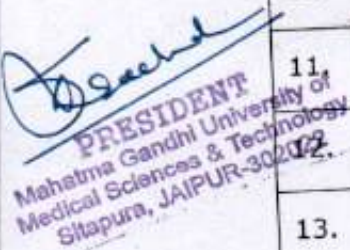 11.
PRESIDENT
Mahatma Gandhi University of
12.
Medical Sciences & Technology
Sitapura, JAIPUR-302022
13.